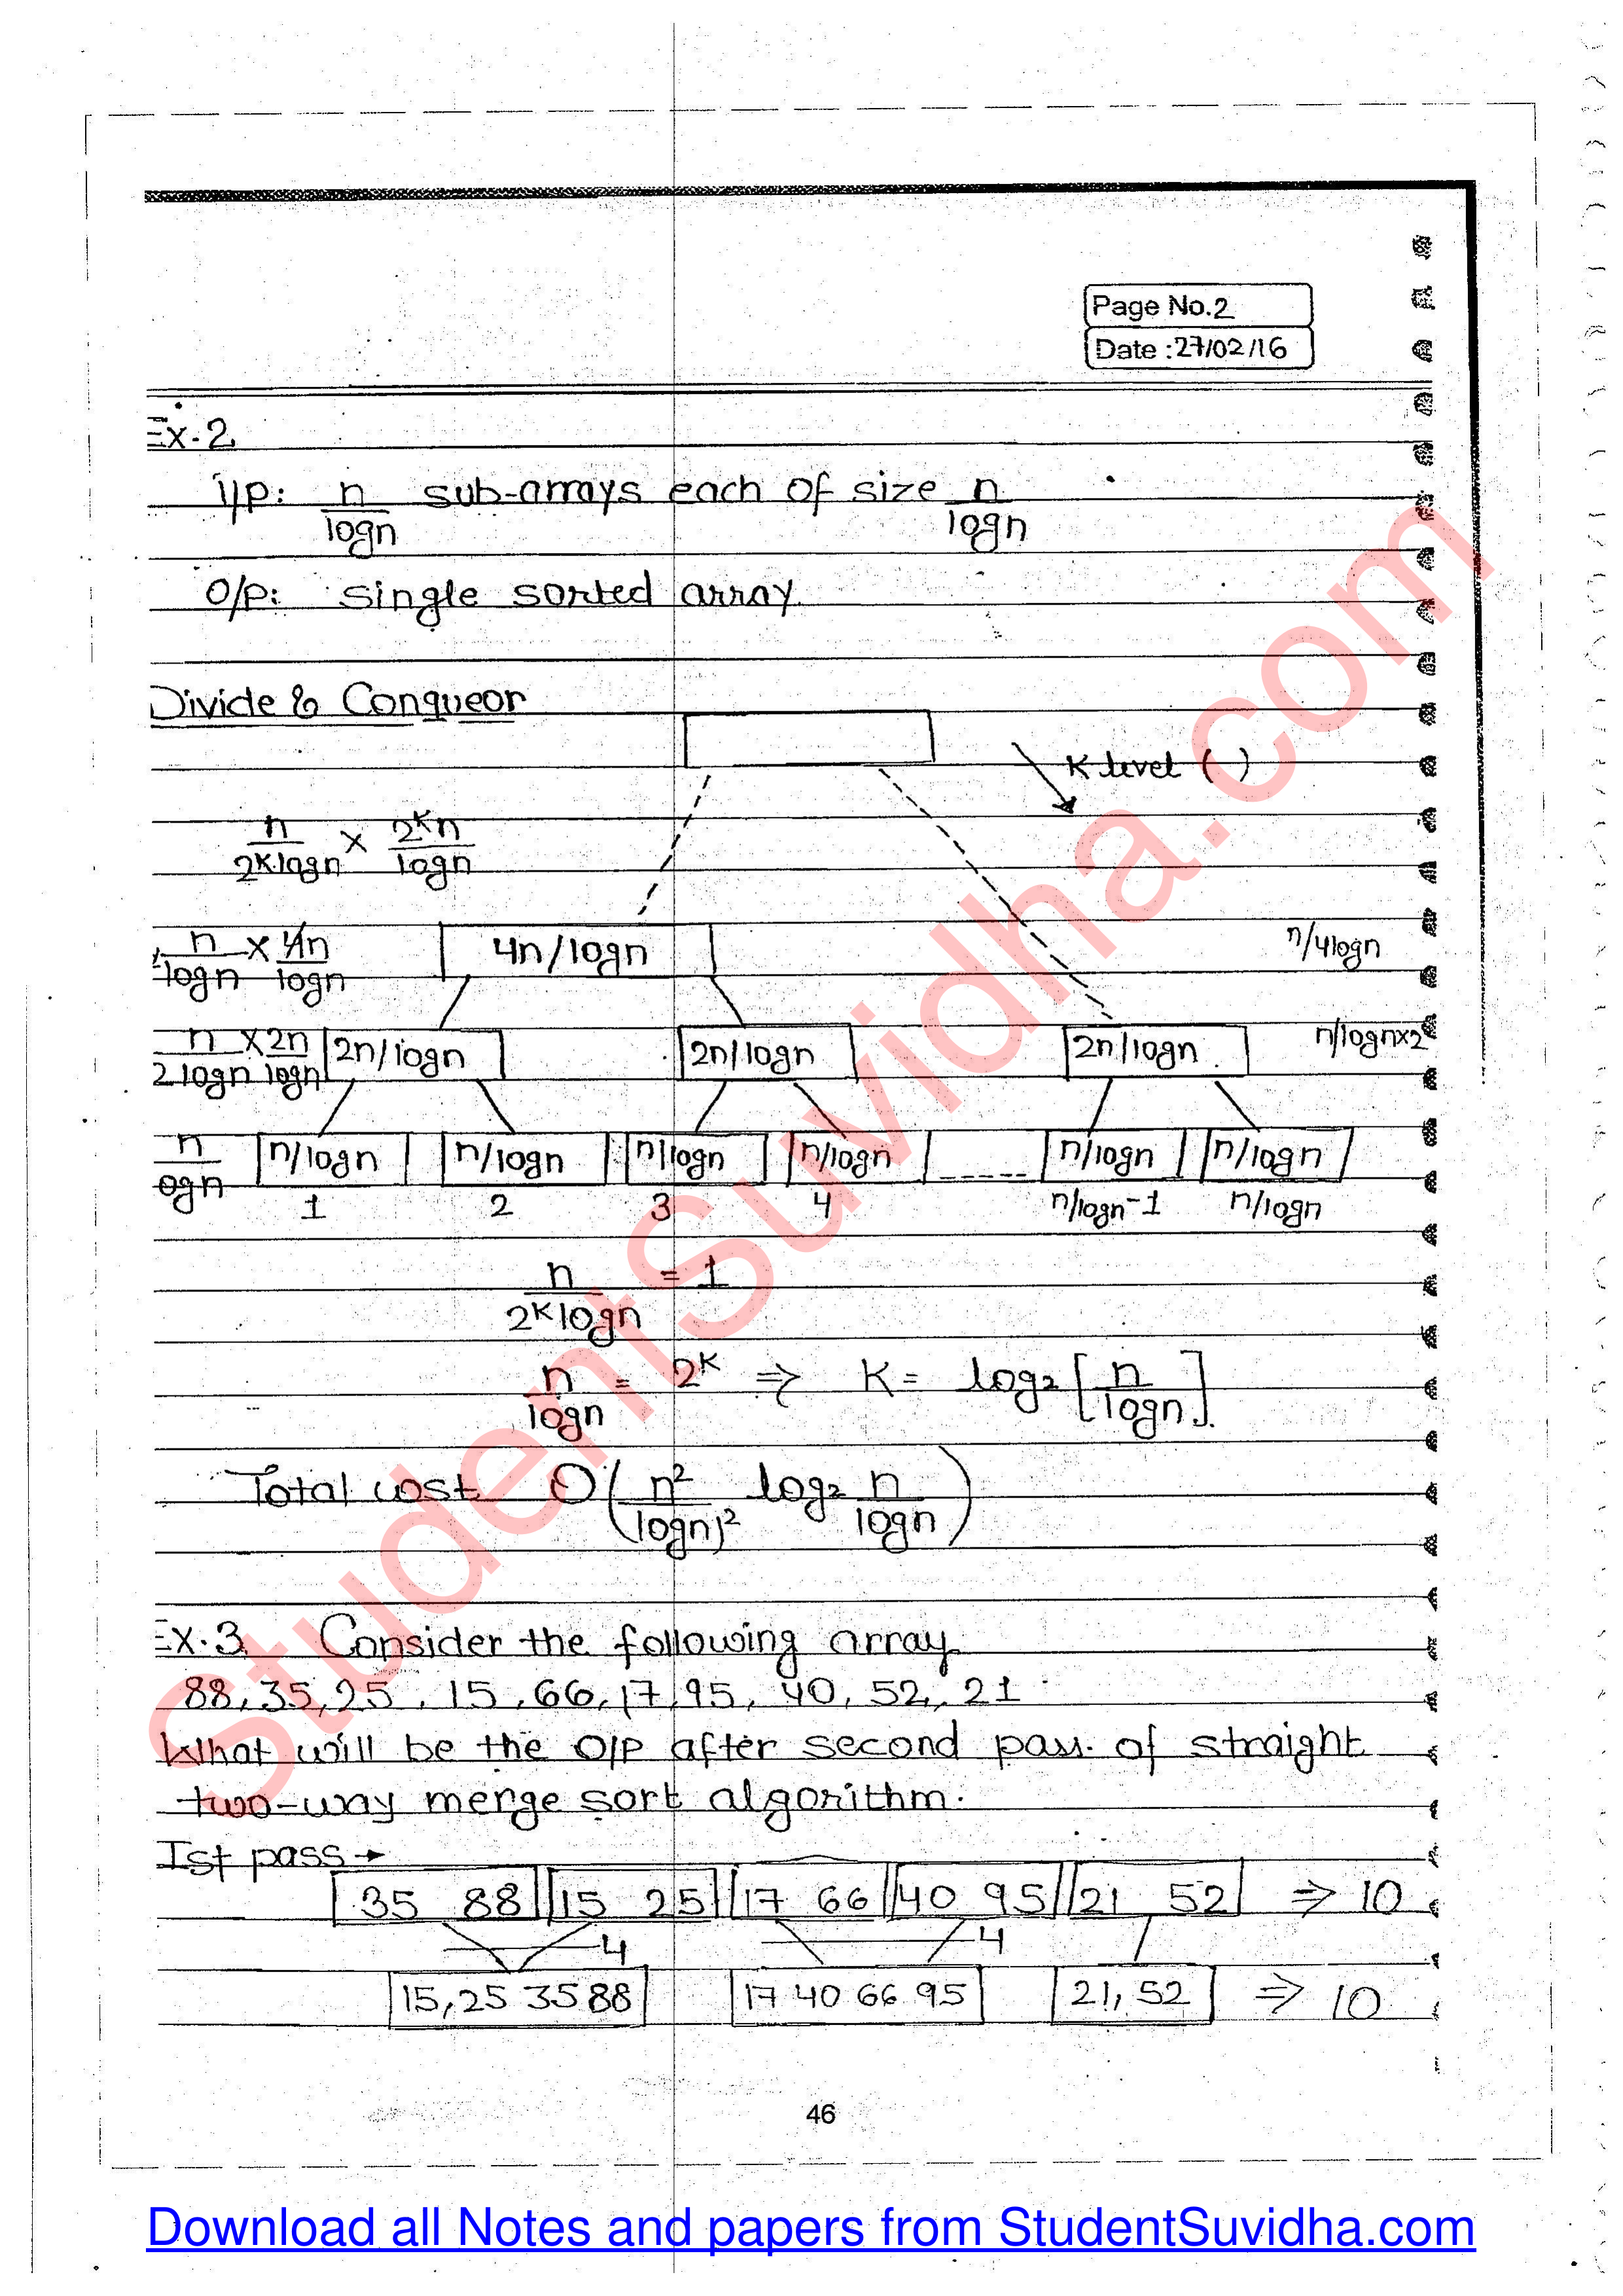 Page No.2
Date :27/02/16
Ex-2
i/p: n/logn sub-arrays each of size n/logn
O/p: single sorted array.
Divide & Conqueor
K level ( )
n/2^K.logn × 2^K n/logn
n/logn × 4n/logn 4n/logn n/4logn
n/2logn × 2n/logn 2n/logn 2n/logn 2n/logn n/logn×2
n/ogn n/logn n/logn n/logn n/logn ----- n/logn n/logn
1 2 3 4 n/logn-1 n/logn
n/2^K logn = 1
n/logn = 2^K ⇒ K = log₂ [n/logn].
Total cost O(n²/(logn)² log₂ n/logn)
Ex.3 Consider the following array
88, 35, 25, 15, 66, 17, 95, 40, 52, 21
What will be the O/P after second pass of straight
two-way merge sort algorithm.
Ist pass →
35 88 15 25 17 66 40 95 21 52 ⇒ 10
4 4
15, 25 35 88 17 40 66 95 21, 52 ⇒ 10
46
StudentSuvidha.com
Download all Notes and papers from StudentSuvidha.com